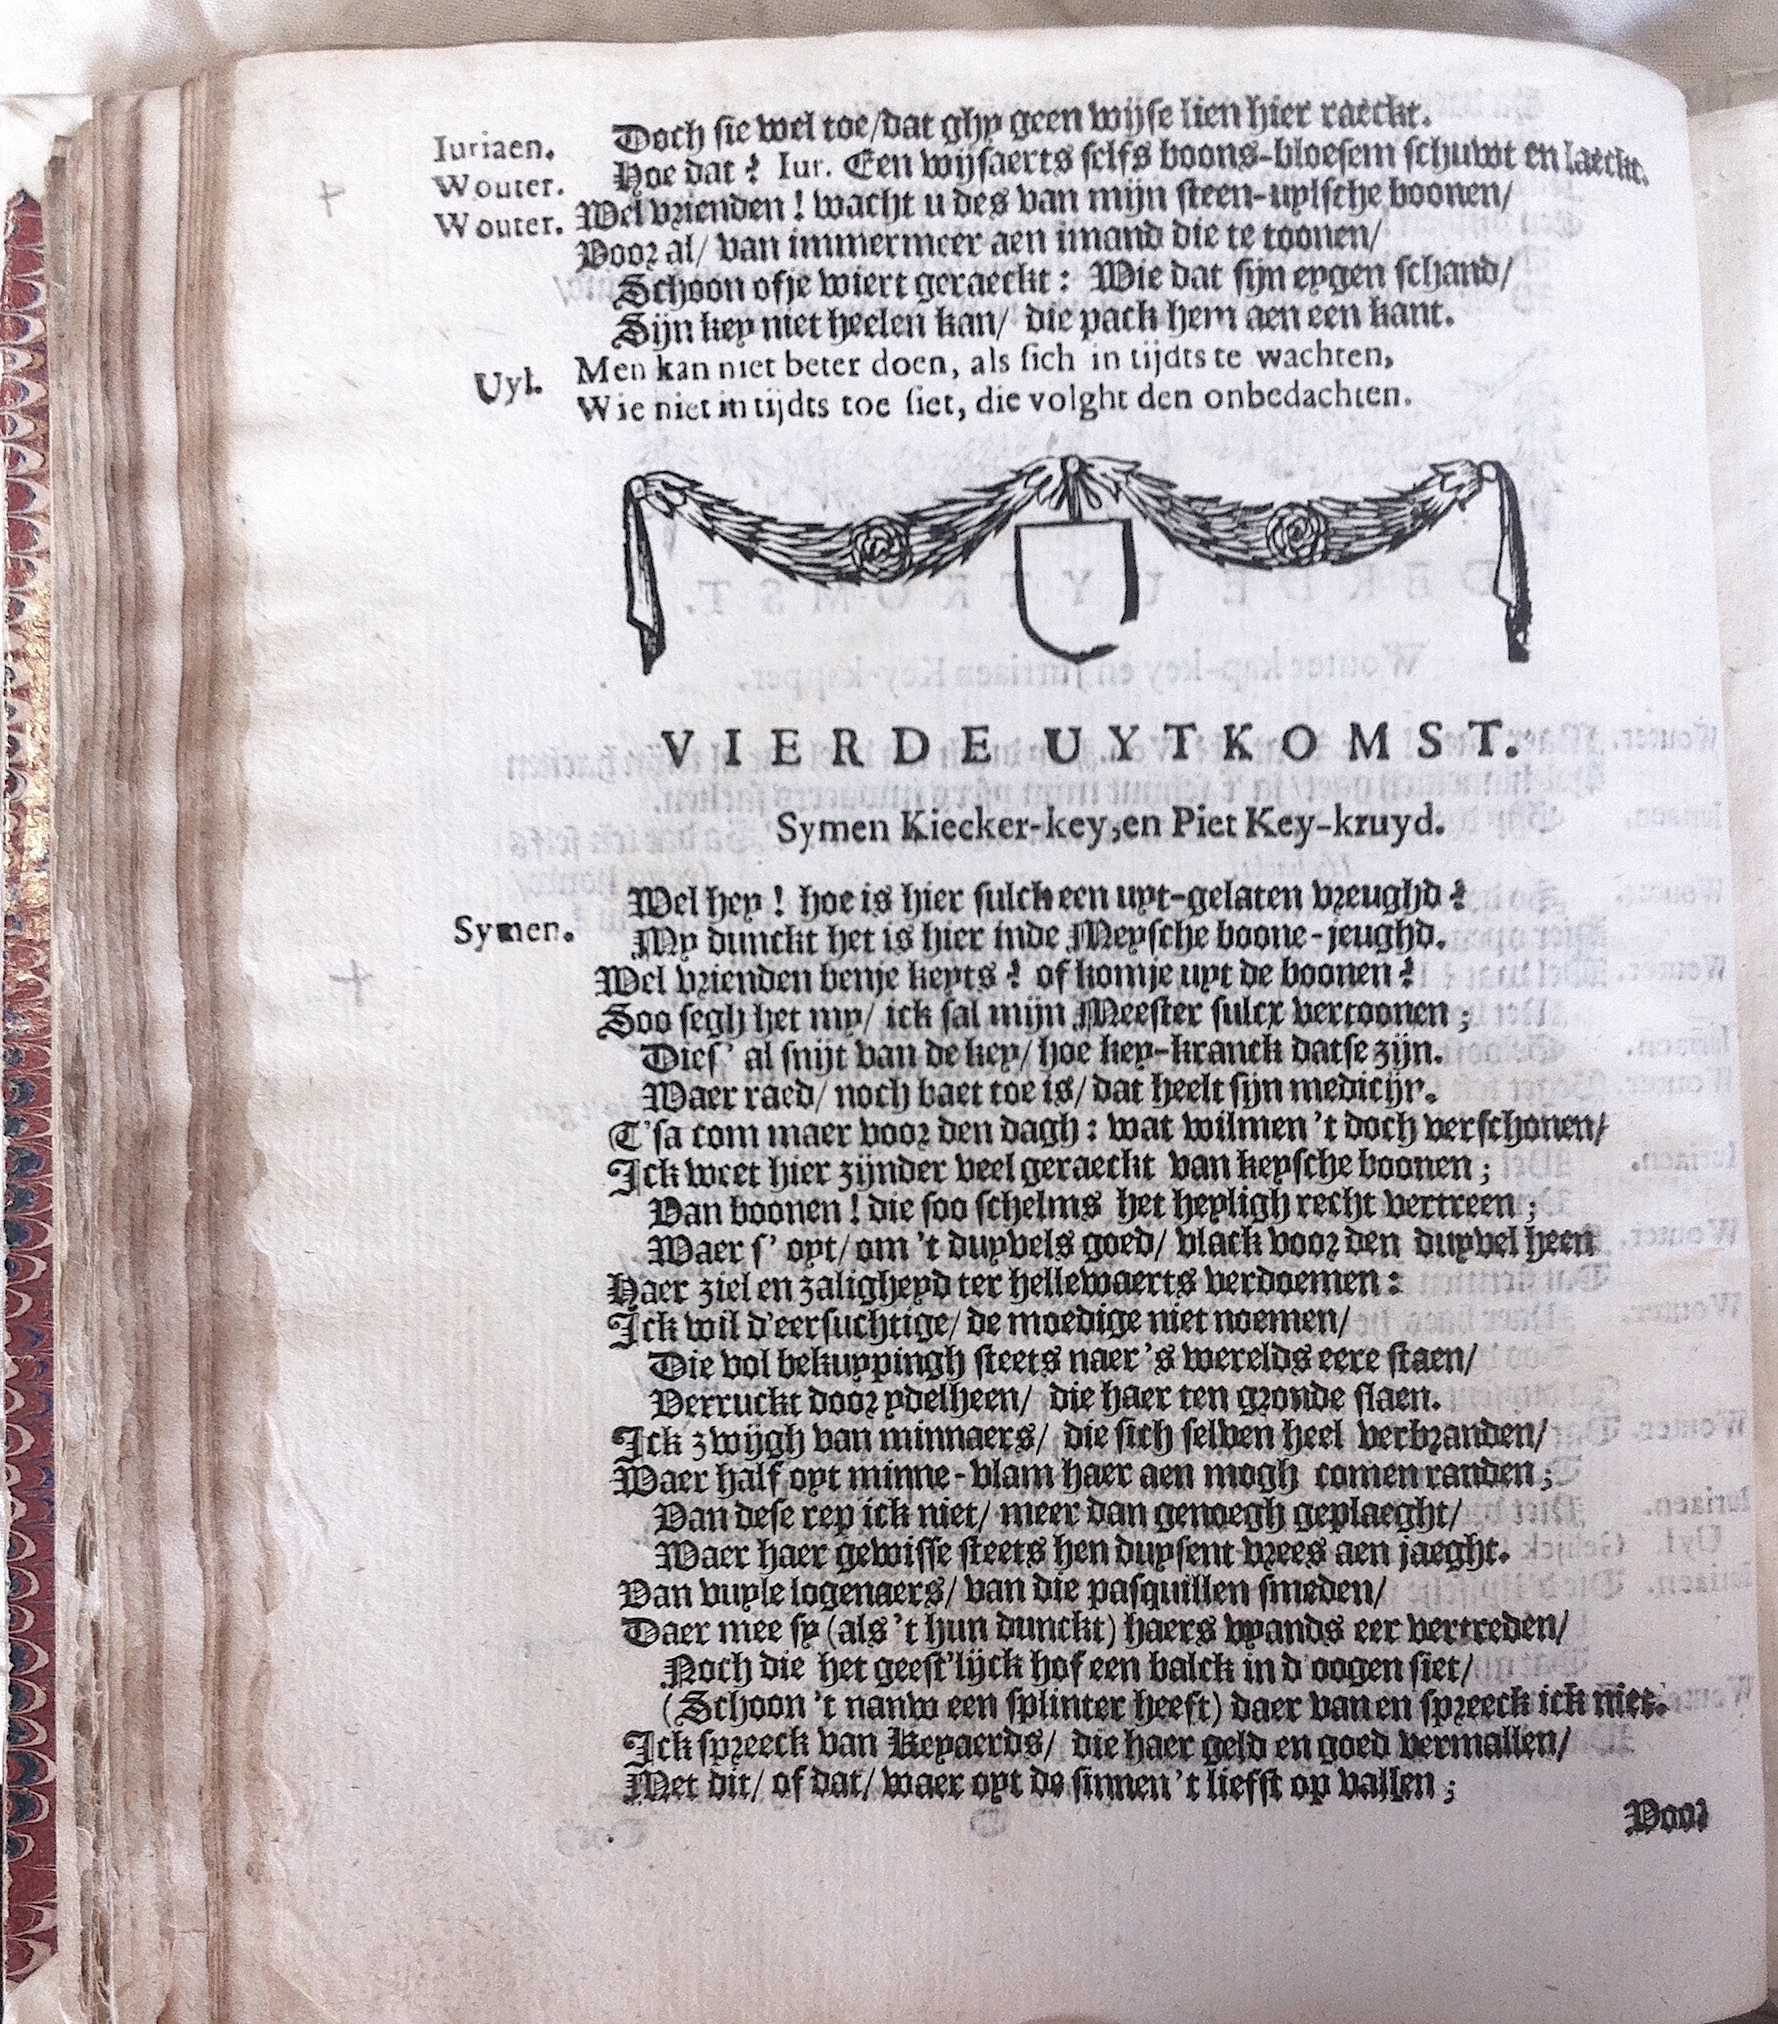 Iuriaen. Doch sie wel toe/dat ghy geen wijse lien hier raeckt.
Wouter. Hoe dat? Iur. Een wijsaerts selfs boons-bloesem schuwt en laeckt.
Wouter. Wel vrienden! wacht u des van mijn steen-uylsche boonen/
Voor al/ van immermeer aen imand die te toonen/
Schoon ofje wiert geraeckt: Wie dat sijn eygen schand/
Sijn key niet heelen kan/ die pack hem aen een kant.
Uyl. Men kan niet beter doen, als sich in tijdts te wachten,
Wie niet in tijdts toe siet, die volght den onbedachten.
VIERDE UYTKOMST.
Symen Kiecker-key, en Piet Key-kruyd.
Wel hey! hoe is hier sulck een uyt-gelaten vreughd?
Symen. My dunckt het is hier inde Meysche boone-jeughd.
Wel vrienden benje keyts? of komje uyt de boonen?
Soo segh het my/ ick sal mijn Meester sulcx vertoonen;
Dies' al snijt van de key/ hoe key-kranck datse zijn.
Waer raed/ noch baet toe is/ dat heelt sijn medicijn.
T'sa com maer voor den dagh: wat wilmen 't doch verschonen/
Ick weet hier zijnder veel geraeckt van keysche boonen;
Van boonen! die soo schelms het heyligh recht vertreen;
Waer s' oyt/ om 't duyvels goed/ vlack voor den duyvel heen
Haer ziel en zaligheyd ter hellewaerts verdoemen:
Ick wil d'eersuchtige/ de moedige niet noemen/
Die vol bekuypingh steets naer 's werelds eere staen/
Verruckt door ydelheen/ die haer ten gronde slaen.
Ick zwijgh van minnaers/ die sich selven heel verbranden/
Waer half oyt minne-vlam haer aen mogh comen randen;
Van dese rep ick niet/ meer dan genoegh geplaeght/
Waer haer gewisse steets hen duysent vrees aen jaeght.
Van vuyle logenaers/ van die pasquillen smeden/
Daer mee sy (als 't hun dunckt) haers vyands eer vertreden/
Noch die het geest'lijck hof een balck in d'oogen siet/
(Schoon 't nauw een splinter heeft) daer van en spreeck ick niet.
Ick spreeck van Keyaerds/ die haer geld en goed vermallen/
Met dit/ of dat/ waer oyt de sinnen 't liefst op vallen;
Voor